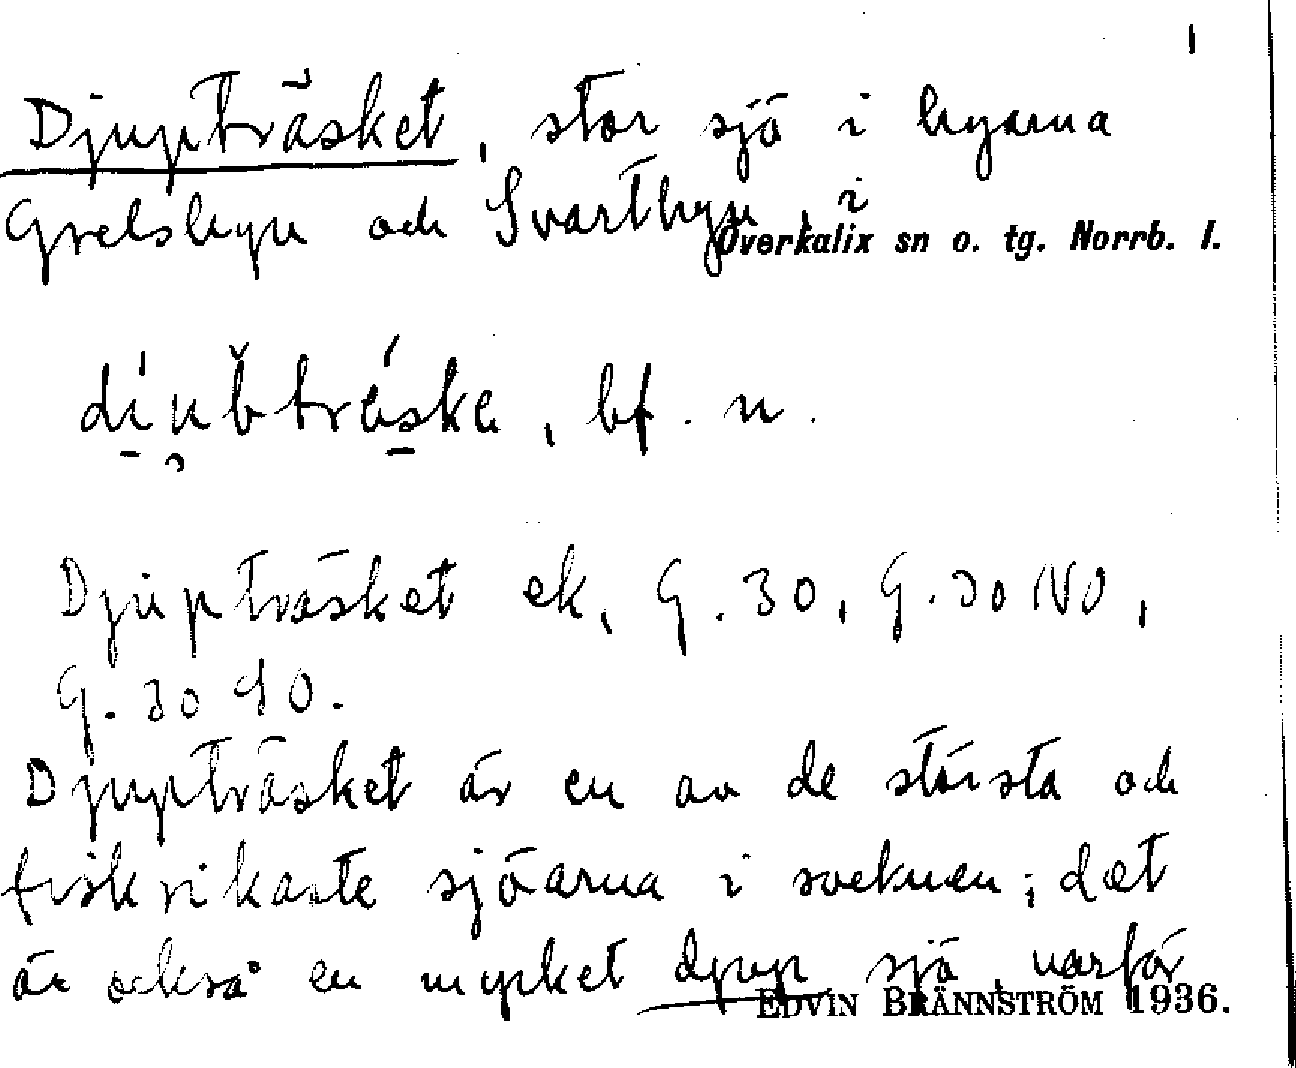 1
Djupträsket, stor sjö i byarna
Grelsbyn och Svartbyn, i
Överkalix sn o. tg. Norrb. l.
bf. n.
Djupträsket ek, G. 30, G. 30 NO,
G. 30 SO.
Djupträsket är en av de största och
fiskrikaste sjöarna i socknen; det
är också en mycket djup sjö, varför
EDVIN BRÄNNSTRÖM 1936.